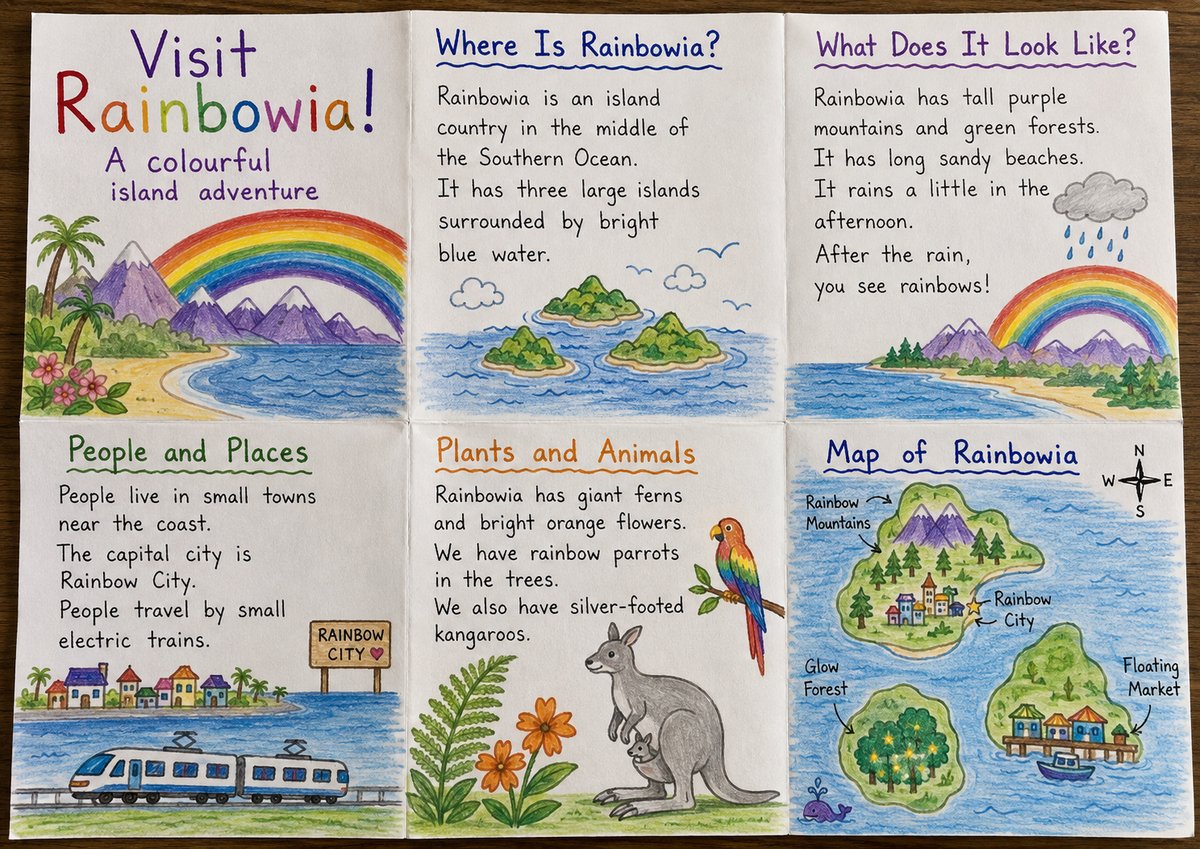 Visit
Rainbowia!
A colourful
island adventure
Where Is Rainbowia?
Rainbowia is an island
country in the middle of
the Southern Ocean.
It has three large islands
surrounded by bright
blue water.
What Does It Look Like?
Rainbowia has tall purple
mountains and green forests.
It has long sandy beaches.
It rains a little in the
afternoon.
After the rain,
you see rainbows!
People and Places
People live in small towns
near the coast.
The capital city is
Rainbow City.
People travel by small
electric trains.
RAINBOW
CITY
Plants and Animals
Rainbowia has giant ferns
and bright orange flowers.
We have rainbow parrots
in the trees.
We also have silver-footed
kangaroos.
Map of Rainbowia
N
W E
S
Rainbow
Mountains
Rainbow
City
Glow
Forest
Floating
Market